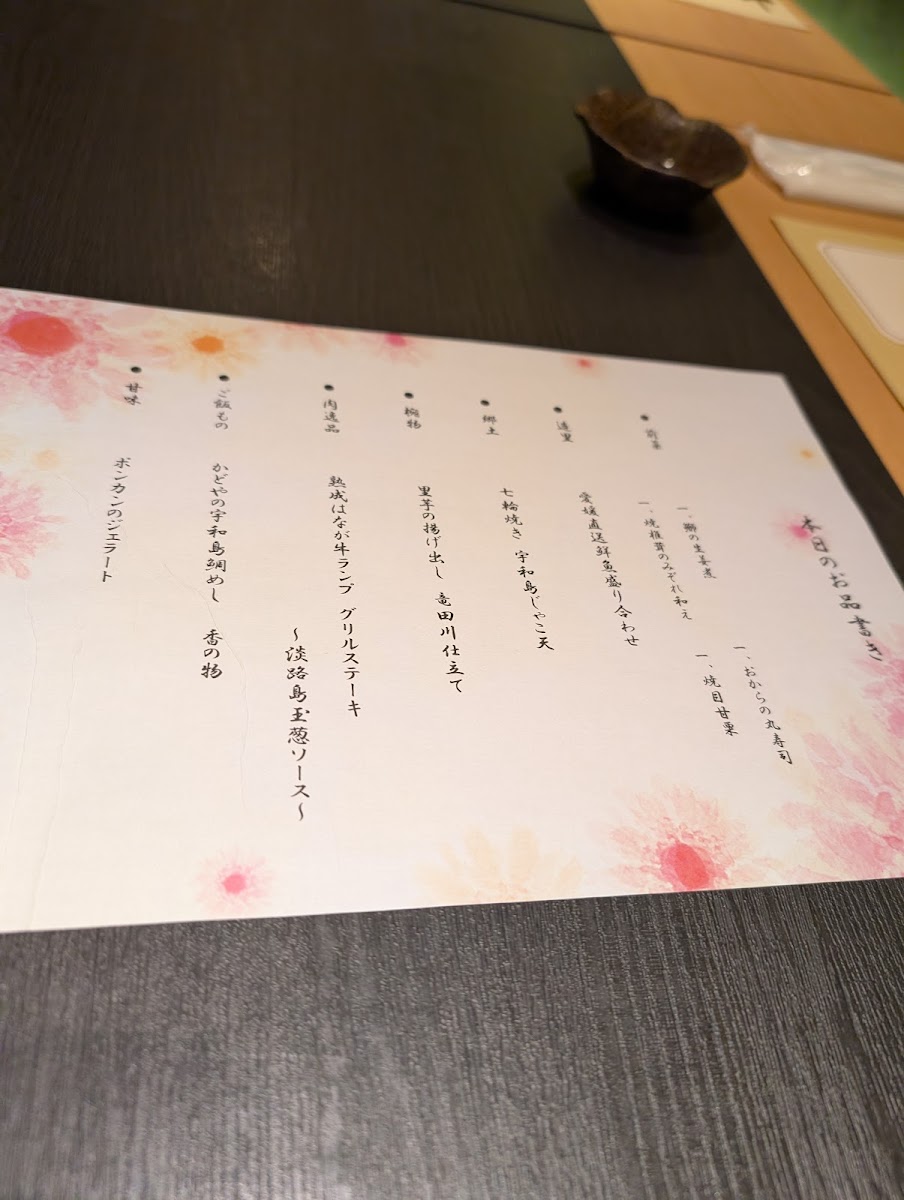 本日のお品書き
● 前菜
一、鰤の生姜煮
一、おからの丸寿司
一、焼椎茸のみぞれ和え
一、焼目甘栗
● 造里
愛媛直送鮮魚盛り合わせ
● 郷土
七輪焼き 宇和島じゃこ天
● 椀物
里芋の揚げ出し 竜田川仕立て
● 肉逸品
熟成はなが牛ランプ グリルステーキ
~淡路島玉葱ソース~
● ご飯もの
かどやの宇和島鯛めし 香の物
● 甘味
ポンカンのジェラート